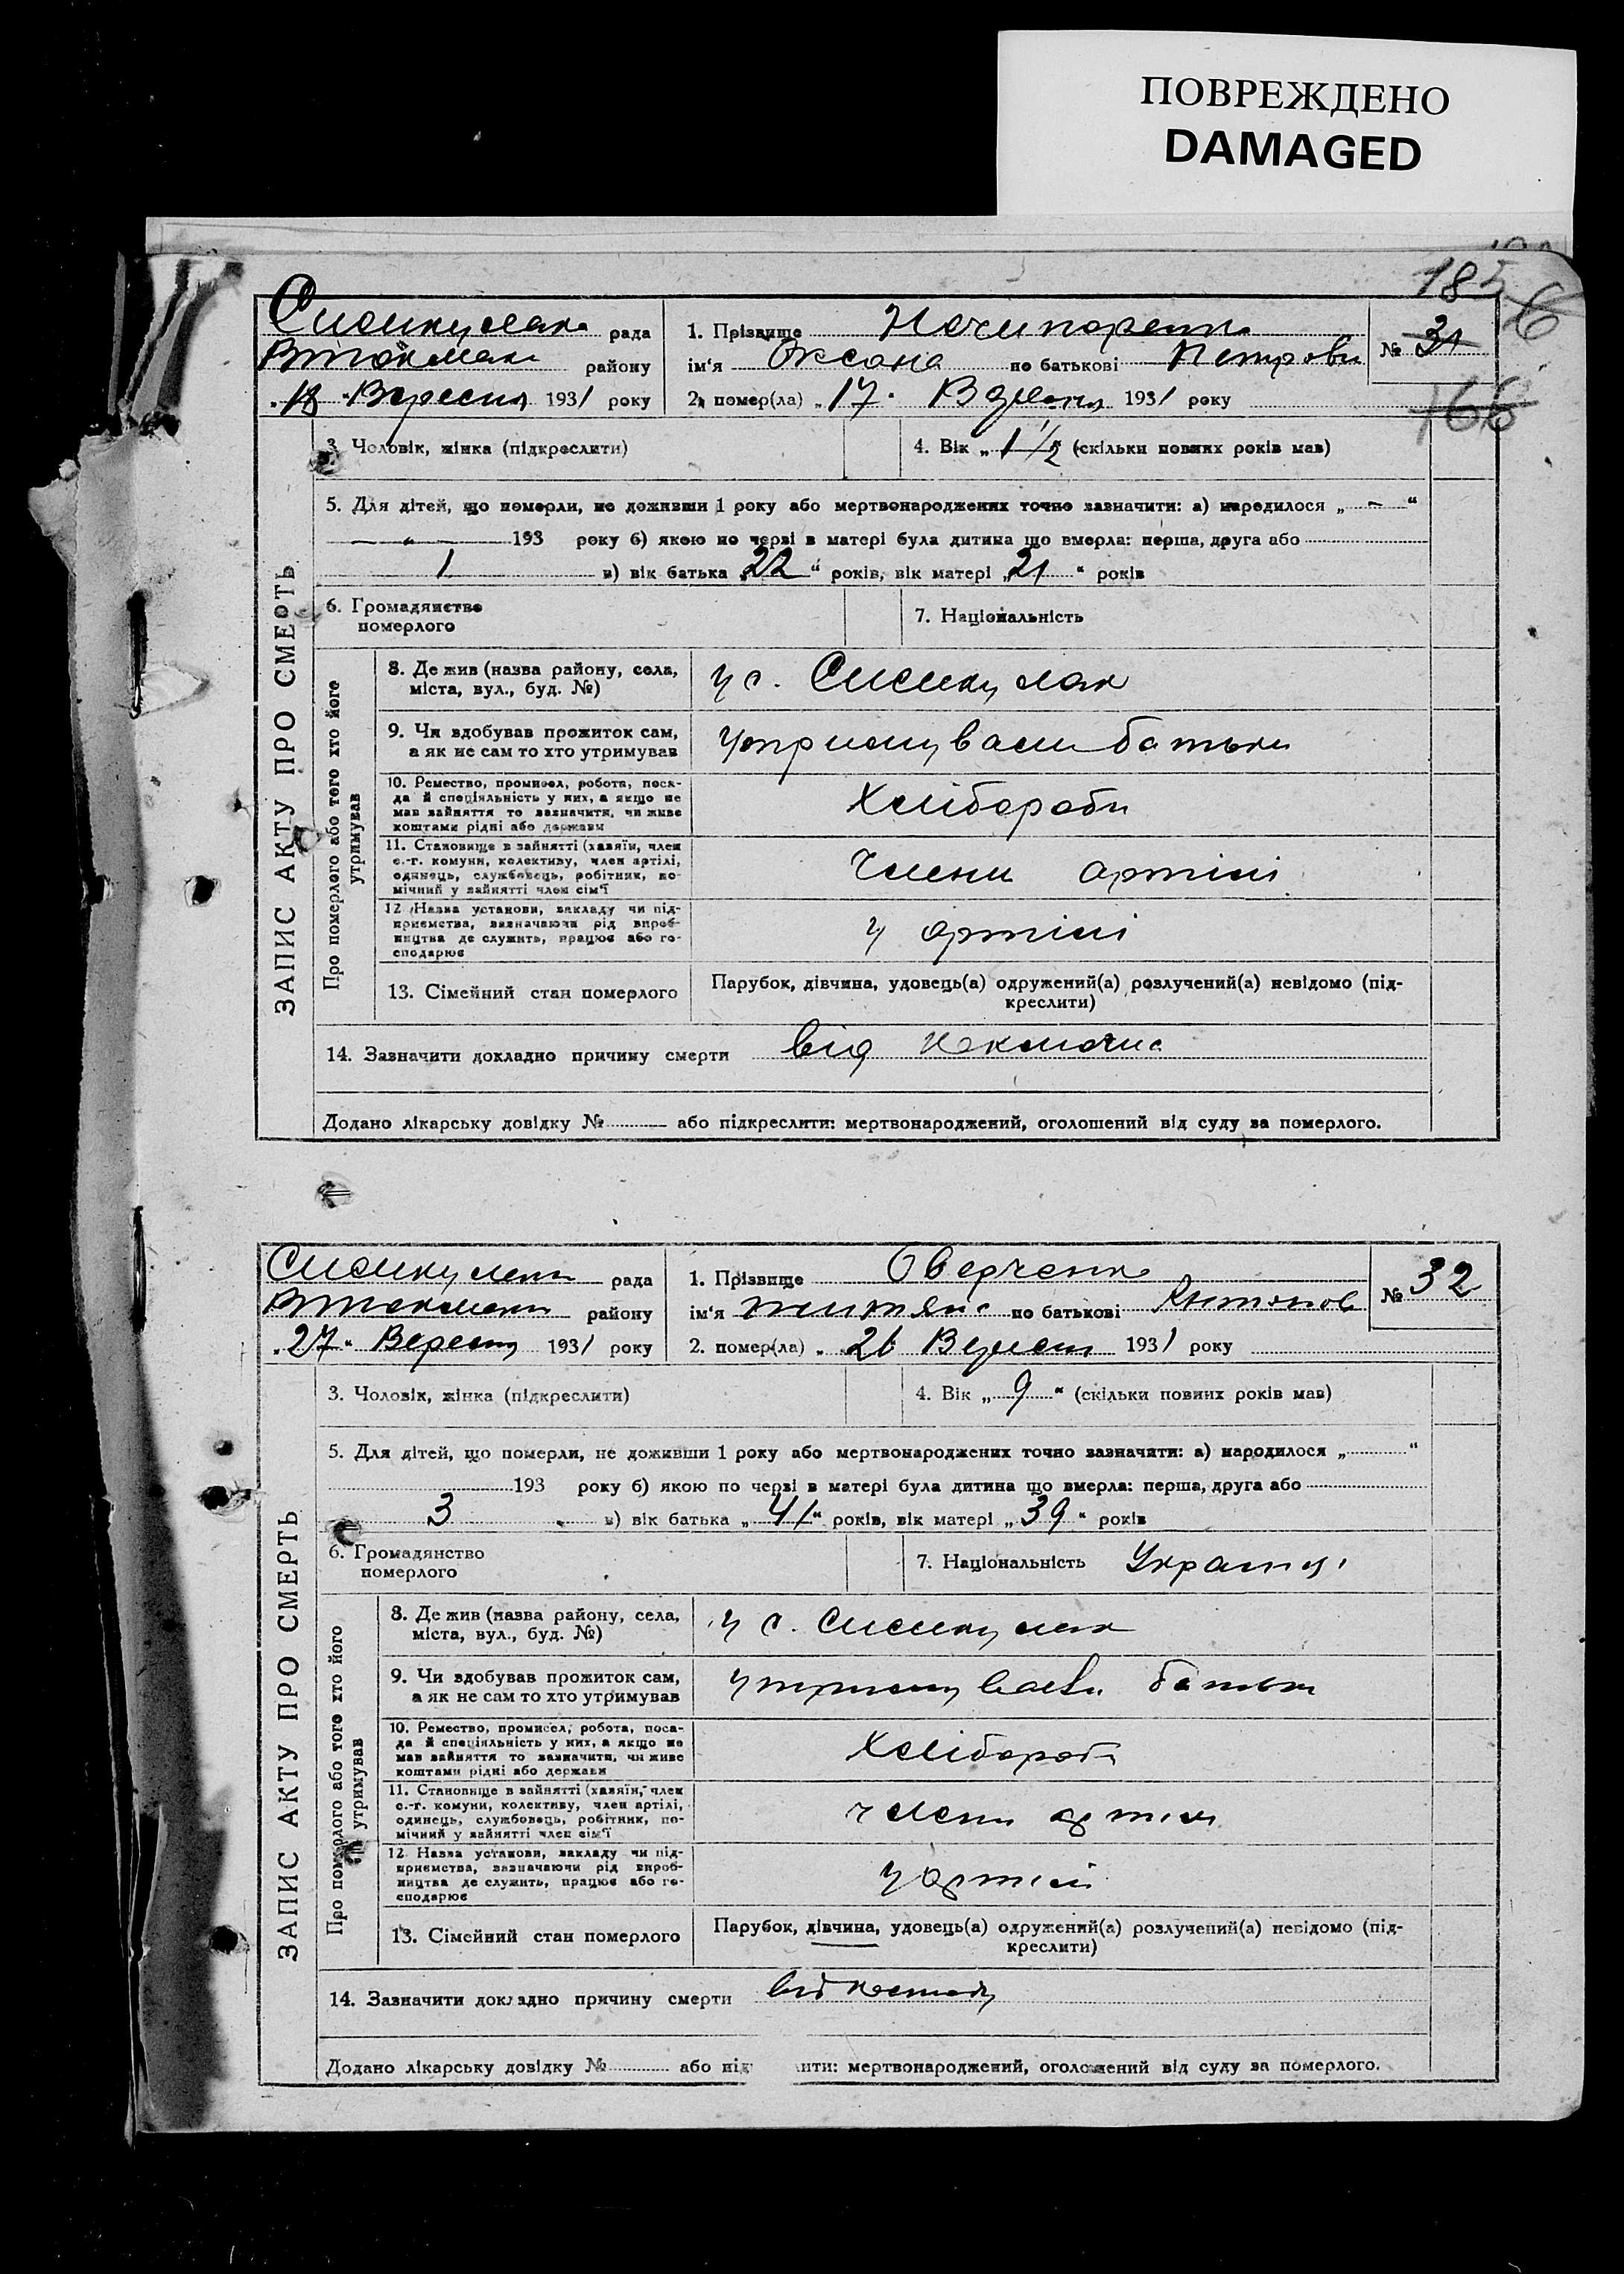 ПОВРЕЖДЕНО
DAMAGED
185
рада
району
„18“ Вересня 1931 року
1. Прізвище Нечипоренко
ім‘я Оксана по батькові Петровн
2. помер(ла) „17“ Вересня 1931 року
№ 31
166
3. Чоловік, жінка (підкреслити)
4. Вік „1 1/2 (скільки повних років мав)
5. Для дітей, що померли, не доживши 1 року або мертвонароджених точно зазначити: а) народилося „ — “
— „ — 193 року б) якою по черзі в матері була дитина що вмерла: перша, друга або
1 в) вік батька „22“ років, вік матері „21“ років
6. Громадянство
померлого
7. Національність
ЗАПИС АКТУ ПРО СМЕРТЬ
Про померлого або того хто його
утримував
8. Де жив (назва району, села,
міста, вул., буд. №)
у с.
9. Чи здобував прожиток сам,
а як не сам то хто утримував
утримували батьки
10. Ремество, промисел, робота, поса-
да й спеціяльність у них, а якщо не
мав зайняття то зазначити, чи живе
коштами рідні або держави
Хлібороби
11. Становище в зайнятті (хазяїн, член
с.-г. комуни, колективу, член артілі,
одинець, службовець, робітник, по-
мічний у зайнятті член сім‘ї
Члени артілі
12 Назва установи, закладу чи під-
приємства, зазначаючи рід вироб-
ництва де служить, працює або го-
сподарює
у артілі
13. Сімейний стан померлого
Парубок, дівчина, удовець(а) одружений(а) розлучений(а) невідомо (під-
креслити)
14. Зазначити докладно причину смерти від
Додано лікарську довідку № або підкреслити: мертвонароджений, оголошений від суду за померлого.
рада
району
„27“ Вересня 1931 року
1. Прізвище Оверченко
ім‘я по батькові Антонов
2. помер(ла) „ 26 Вересня 1931 року
№ 32
3. Чоловік, жінка (підкреслити)
4. Вік „9“ (скільки повних років мав)
5. Для дітей, що померли, не доживши 1 року або мертвонароджених точно зазначити: а) народилося „ “
193 року б) якою по черзі в матері була дитина що вмерла: перша, друга або
3 в) вік батька „41“ років, вік матері „39“ років
6. Громадянство
померлого
7. Національність
ЗАПИС АКТУ ПРО СМЕРТЬ
Про померлого або того хто його
утримував
8. Де жив (назва району, села,
міста, вул., буд. №)
у с.
9. Чи здобував прожиток сам,
а як не сам то хто утримував
утримували батьки
10. Ремество, промисел, робота, поса-
да й спеціяльність у них, а якщо не
мав зайняття то зазначити, чи живе
коштами рідні або держави
Хлібороби
11. Становище в зайнятті (хазяїн, член
с.-г. комуни, колективу, член артілі,
одинець, службовець, робітник, по-
мічний у зайнятті член сім‘ї
члени артілі
12 Назва установи, закладу чи під-
приємства, зазначаючи рід вироб-
ництва де служить, працює або го-
сподарює
у артілі
13. Сімейний стан померлого
Парубок, дівчина, удовець(а) одружений(а) розлучений(а) невідомо (під-
креслити)
14. Зазначити докладно причину смерти від
Додано лікарську довідку № або підк ити: мертвонароджений, оголошений від суду за померлого.